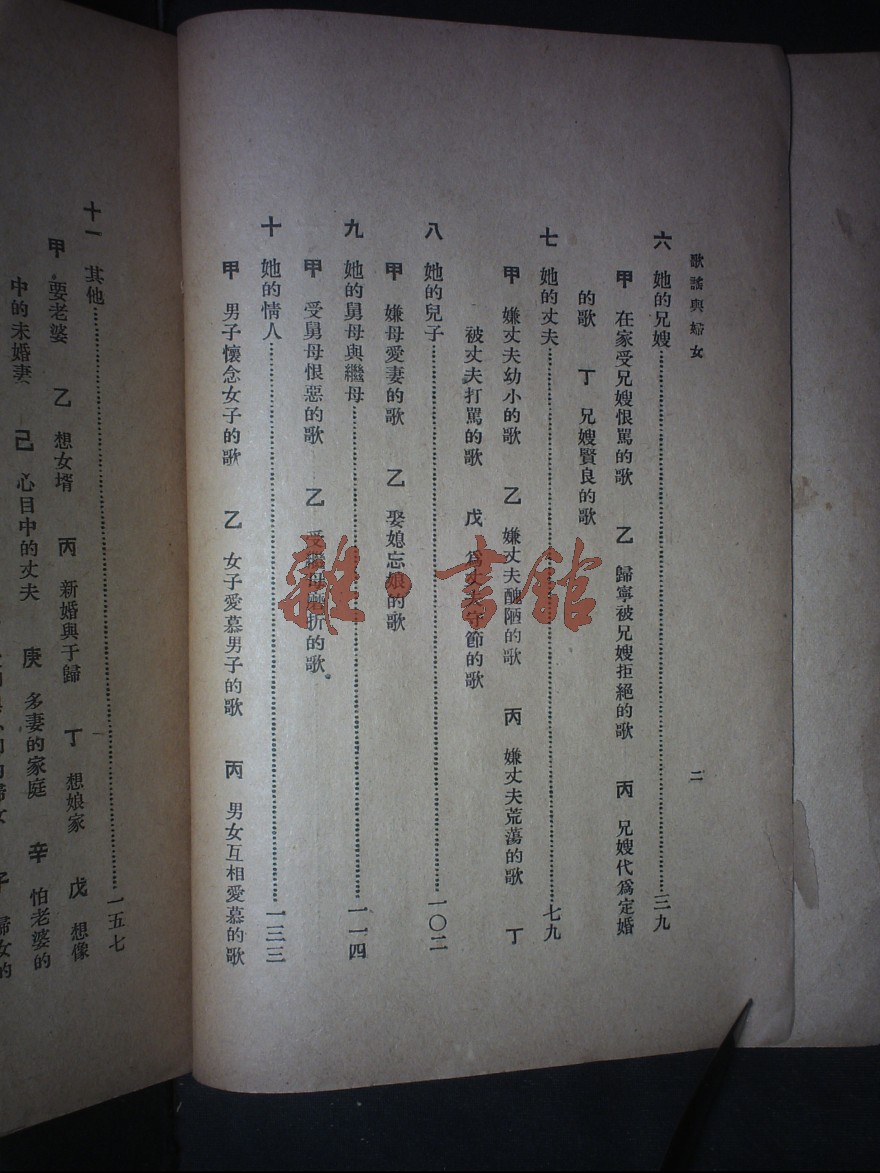 歌謠與婦女
二
六 她的兄嫂……三九
甲 在家受兄嫂恨罵的歌 乙 歸寧被兄嫂拒絕的歌 丙 兄嫂代爲定婚
的歌 丁 兄嫂賢良的歌
七 她的丈夫……七九
甲 嫌丈夫幼小的歌 乙 嫌丈夫醜陋的歌 丙 嫌丈夫荒蕩的歌 丁
被丈夫打罵的歌 戊 爲丈夫守節的歌
八 她的兒子……一〇二
甲 嫌母愛妻的歌 乙 娶媳忘娘的歌
九 她的舅母與繼母……一一四
甲 受舅母恨惡的歌 乙 受繼母磨折的歌
十 她的情人……一三三
甲 男子懷念女子的歌 乙 女子愛慕男子的歌 丙 男女互相愛慕的歌
十一 其他……一五七
甲 要老婆 乙 想女壻 丙 新婚與于歸 丁 想娘家 戊 想像
中的未婚妻 己 心目中的丈夫 庚 多妻的家庭 辛 怕老婆的
婦女 子 婦女的
雜·書館